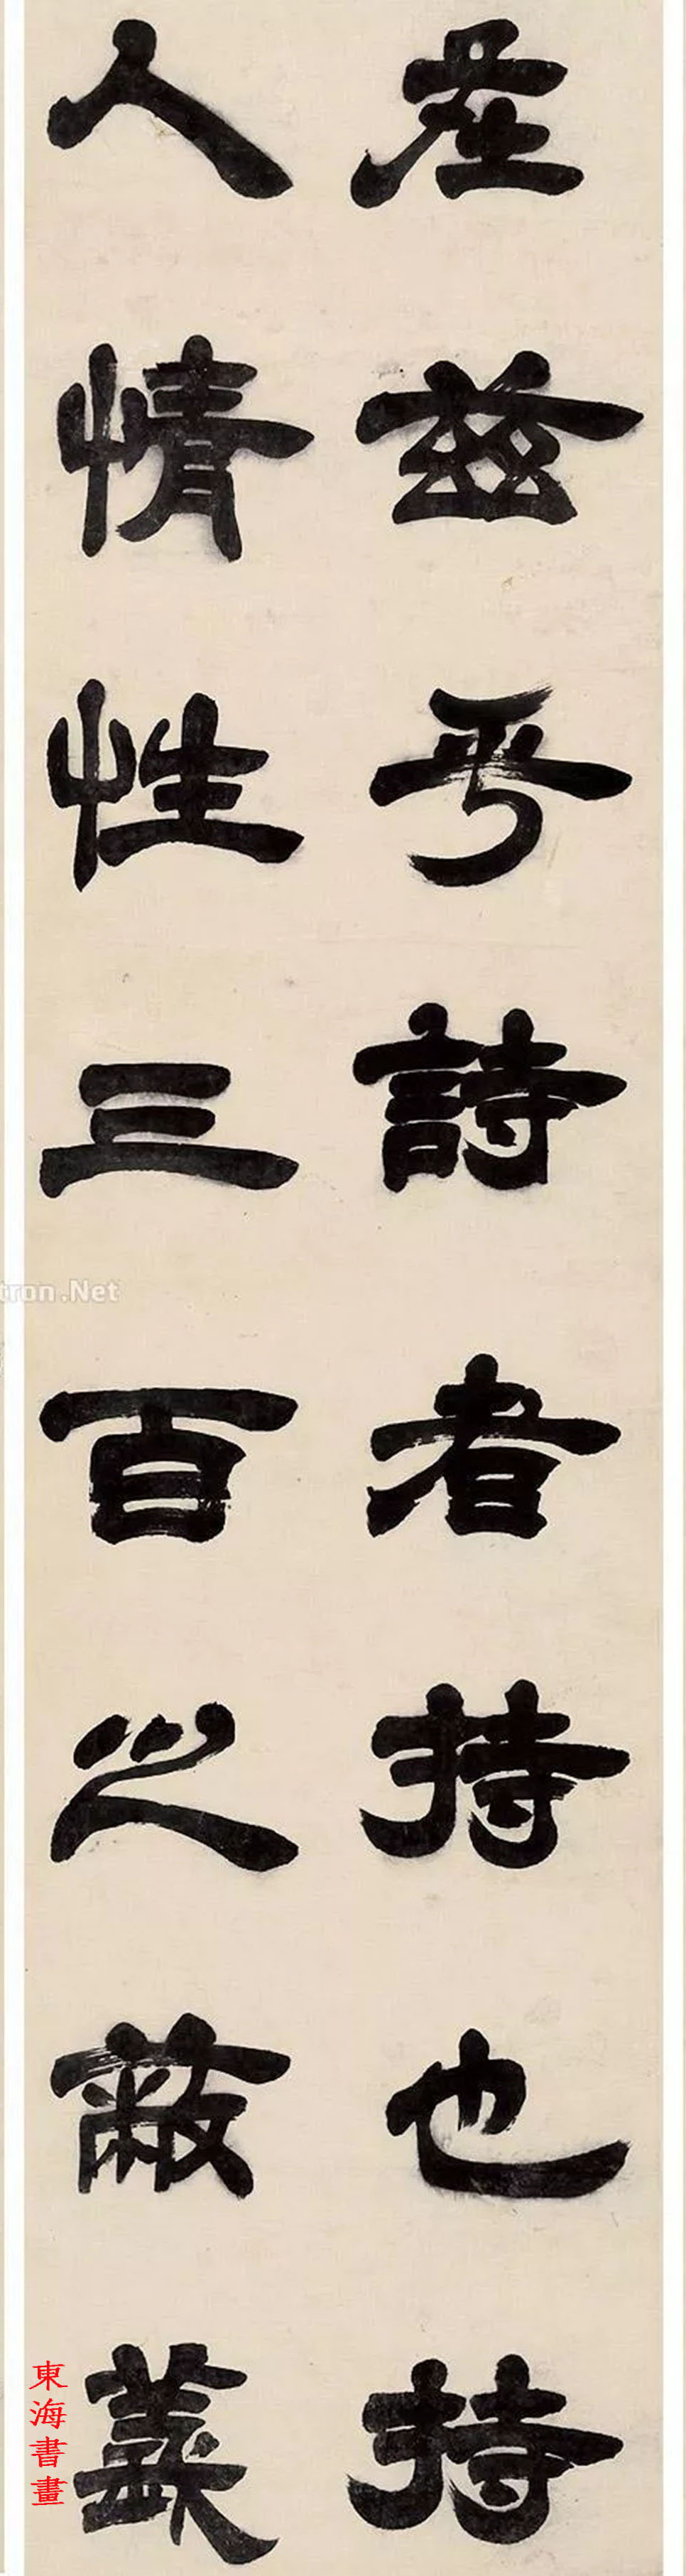 在兹乎詩者持也持
人情性三百之蔽義
東海書畫
tron.Net